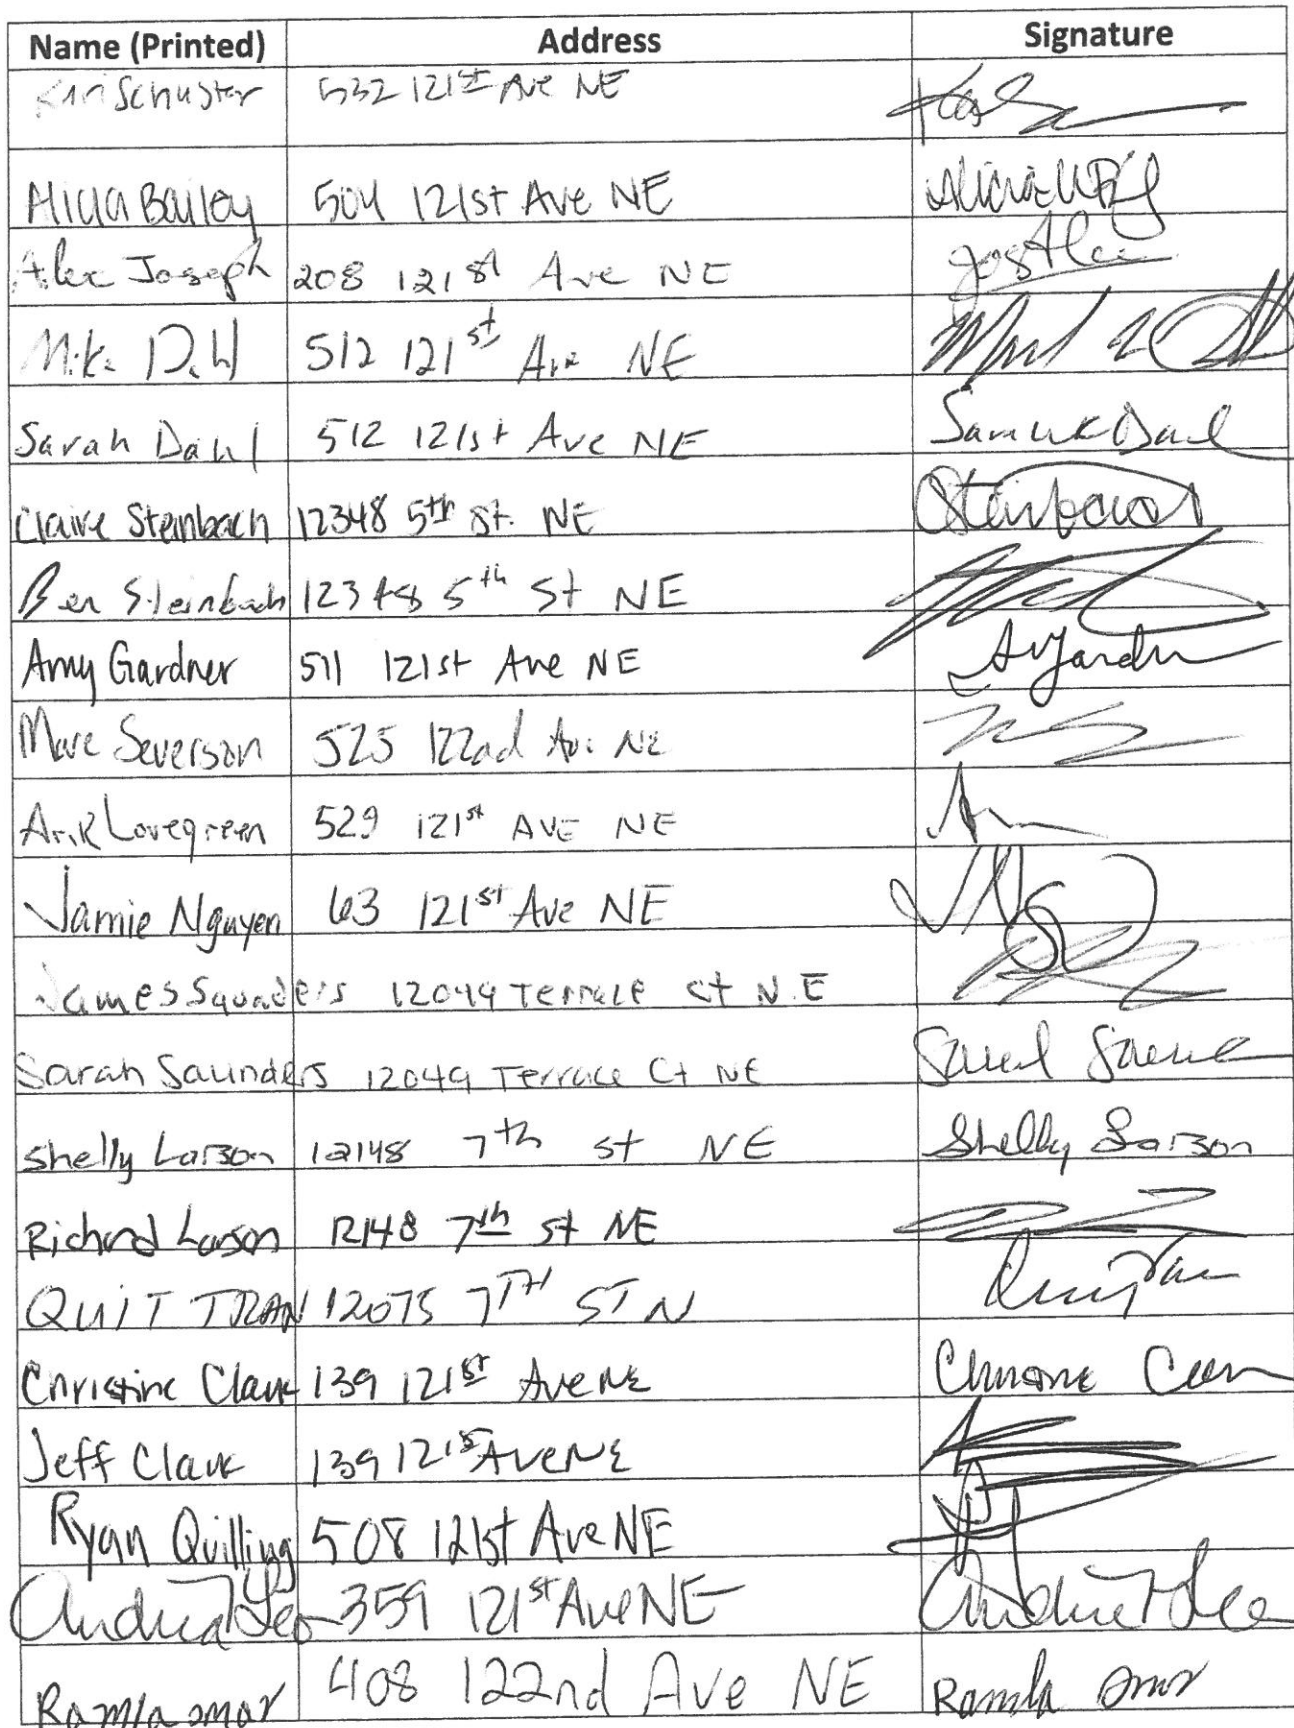 Name (Printed) Address Signature
Kari Schuster 532 121st Ave NE
Alicia Bailey 504 121st Ave NE
Alex Joseph 208 121st Ave NE
Mike Dahl 512 121st Ave NE
Sarah Dahl 512 121st Ave NE
Claire Steinbach 12348 5th St. NE Steinbach
Ben Steinbach 12348 5th St NE
Amy Gardner 511 121st Ave NE
Marc Severson 525 122nd Ave NE
Arik Lovegreen 529 121st AVE NE
Jamie Nguyen 63 121st Ave NE
James Saunders 12049 Terrace Ct N.E
Sarah Saunders 12049 Terrace Ct NE
Shelly Larson 12148 7th St NE Shelly Larson
Richard Larson 12148 7th St NE
QUIT TRAN 12075 7TH ST N
Christine Clark 139 121st Ave NE
Jeff Clark 139 121st Ave NE
Ryan Quilling 508 121st Ave NE
Andrea Leo 359 121st Ave NE
Ramla omar 408 122nd Ave NE Ramla omar